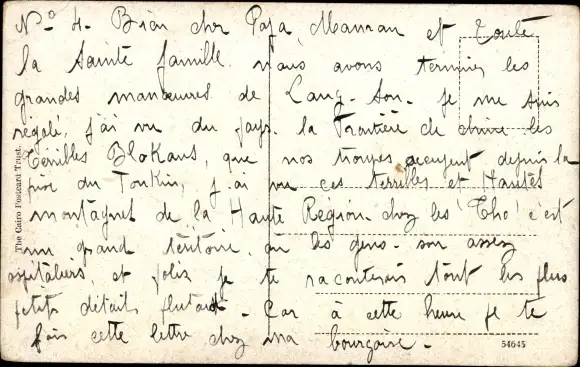 No 4. Bien cher Papa, Maman et toute
la Sainte famille. nous avons terminer les
grandes manœuvres de Lang-Son. je me suis
régalé, j'ai vu du pays. la Frontière de chine les
Terribles Blokaus, que nos troupes occupent depuis la
prise du Tonkin, j.ai vu ces terribles et Hautes
montagnes de la Haute Région. chez les 'Tho' c'est
un grand téritoire, où les gens. son assez
ospitaliers, et jolis je te raconterais tout les plus
petits détail plutard. Car à cette heure je te
fais cette lettre chez ma bourgoise.
The Cairo Postcard Trust.
54645